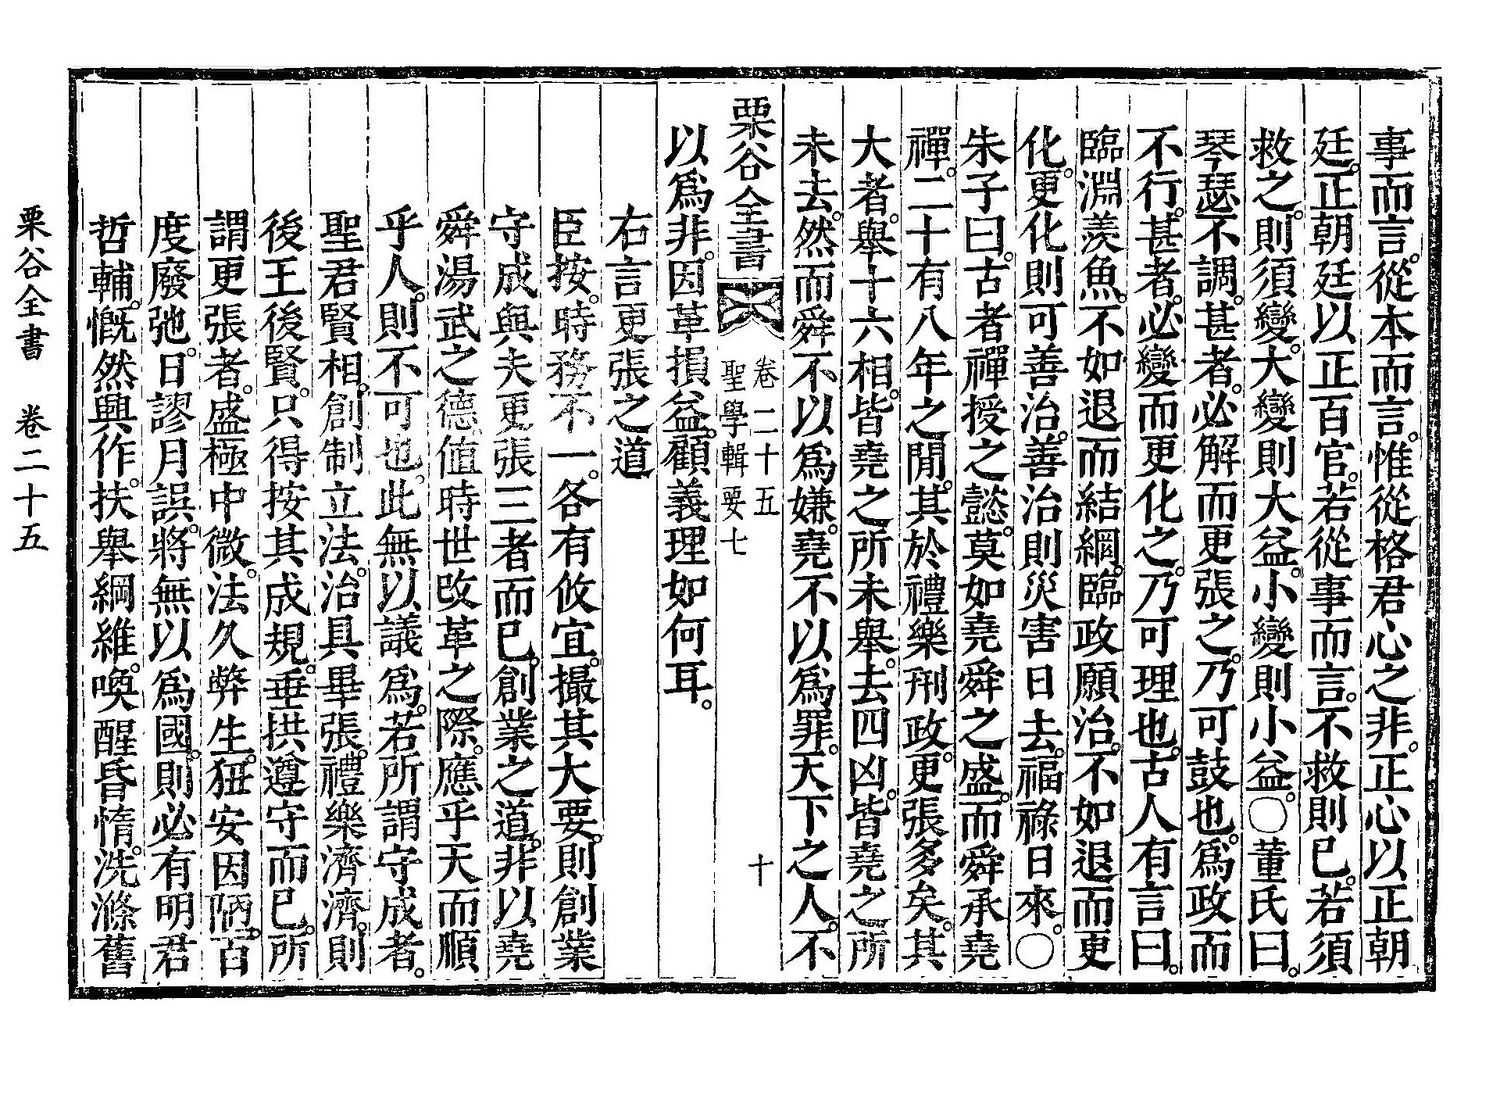 事而言。從本而言。惟從格君心之非。正心以正朝
廷。正朝廷以正百官。若從事而言。不救則已。若須
救之。則須變。大變則大益。小變則小益。○董氏曰。
琴瑟不調。甚者。必解而更張之。乃可鼓也。爲政而
不行。甚者。必變而更化之。乃可理也。古人有言曰。
臨淵羨魚。不如退而結網。臨政願治。不如退而更
化。更化則可善治。善治則災害日去。福祿日來。○
朱子曰。古者禪授之懿。莫如堯舜之盛。而舜承堯
禪。二十有八年之閒。其於禮樂刑政。更張多矣。其
大者。舉十六相。皆堯之所未舉。去四凶。皆堯之所
未去。然而舜不以爲嫌。堯不以爲罪。天下之人。不
栗谷全書
卷二十五
聖學輯要七
十
以爲非。因革損益。顧義理如何耳。
右言更張之道
臣按。時務不一。各有攸宜。撮其大要。則創業
守成與夫更張三者而已。創業之道。非以堯
舜湯武之德。値時世改革之際。應乎天而順
乎人。則不可也。此無以議爲。若所謂守成者。
聖君賢相。創制立法。治具畢張。禮樂濟濟。則
後王後賢。只得按其成規。垂拱遵守而已。所
謂更張者。盛極中微。法久弊生。狃安因陋。百
度廢弛。日謬月誤。將無以爲國。則必有明君
哲輔。慨然興作。扶舉綱維。喚醒昏惰。洗滌舊
栗谷全書 卷二十五